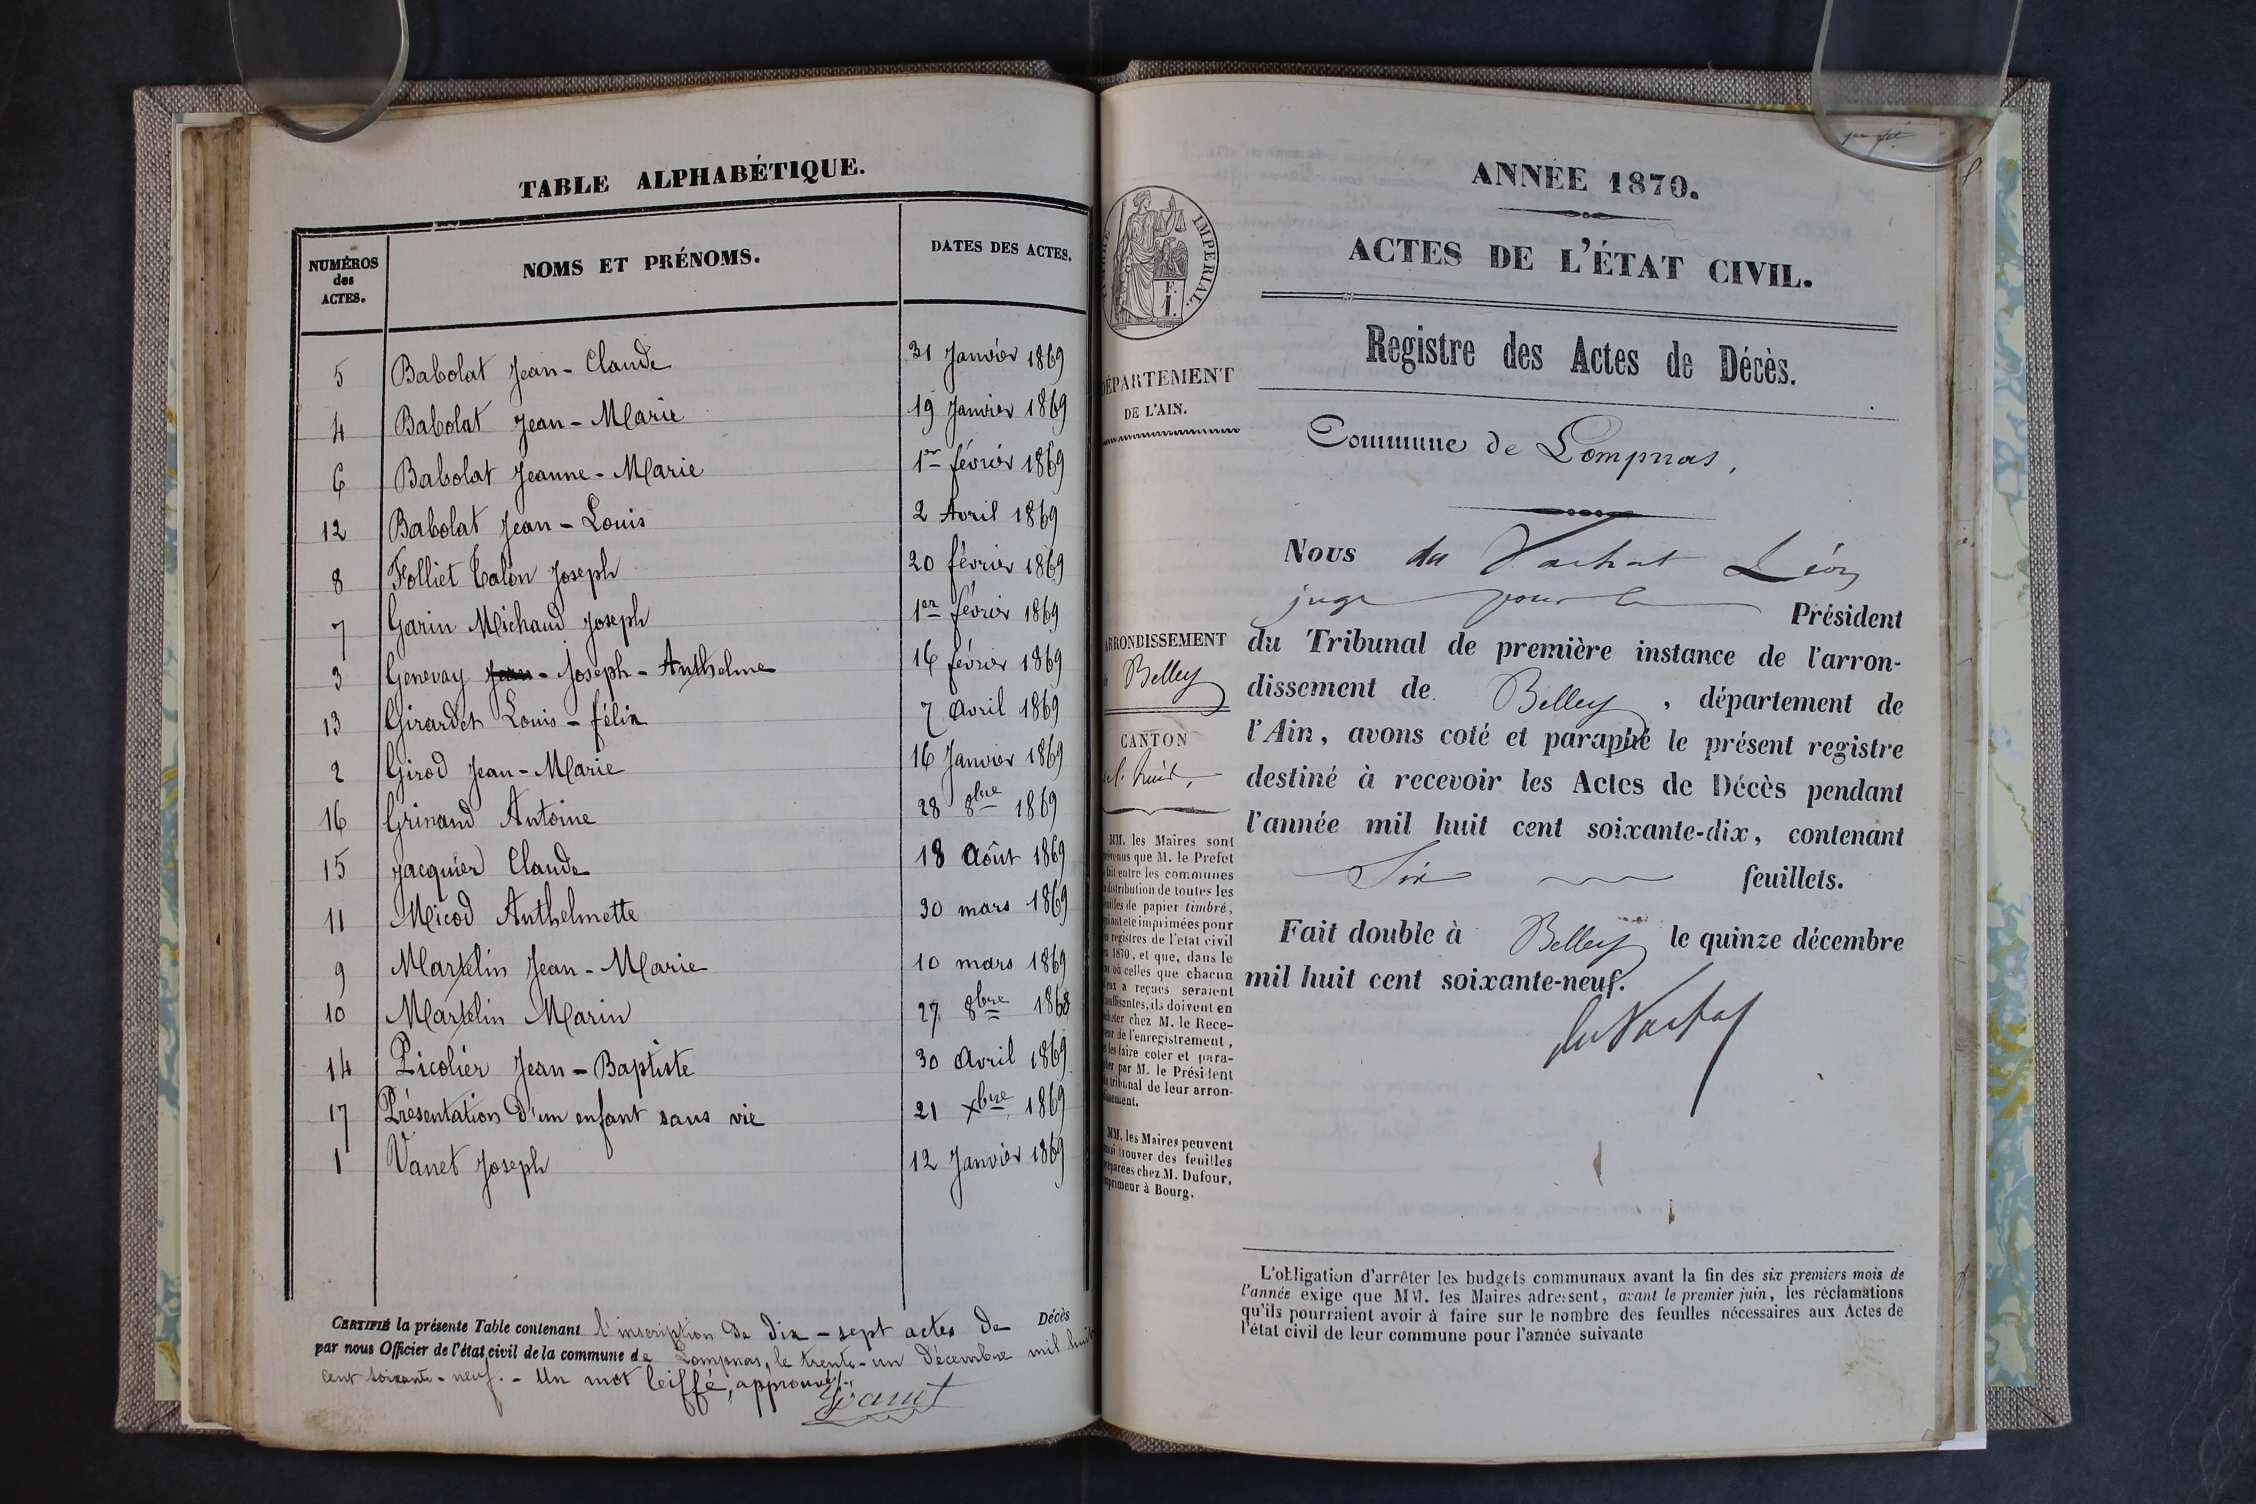 TABLE ALPHABÉTIQUE.
NUMÉROS des ACTES. NOMS ET PRÉNOMS. DATES DES ACTES.
5 Babolat Jean-Claude 31 Janvier 1869
4 Babolat Jean-Marie 19 Janvier 1869
6 Babolat Jeanne-Marie 1er février 1869
12 Babolat Jean-Louis 2 Avril 1869
8 Folliet Talon Joseph 20 février 1869
7 Garin Michaud Joseph 1er février 1869
3 Genevay Jean-Joseph-Anthelme 16 février 1869
13 Girardet Louis-félix 7 Avril 1869
2 Girod Jean-Marie 16 Janvier 1869
16 Grinand Antoine 28 8bre 1869
15 Jacquier Claude 18 Août 1869
11 Micod Anthelmette 30 mars 1869
9 Martelin Jean-Marie 10 mars 1869
10 Martelin Marin 27 8bre 1868
14 Picolier Jean-Baptiste 30 Avril 1869
17 Présentation d'un enfant sans vie 21 Xbre 1869
1 Vanet Joseph 12 Janvier 1869
CERTIFIÉ la présente Table contenant l'inscription de dix-sept actes de Décès
par nous Officier de l'état civil de la commune de Lompnas, le trente-un décembre mil huit
cent soixante-neuf.- Un mot leiffé, approuvé.
ANNÉE 1870.
ACTES DE L'ÉTAT CIVIL.
Registre des Actes de Décès.
IMPERIAL.
F.
1.
DÉPARTEMENT
DE L'AIN.
Commune de Lompnas,
Nous du Vachat Léon
juge pour le Président
du Tribunal de première instance de l'arron-
dissement de Belley, département de
l'Ain, avons coté et paraphé le présent registre
destiné à recevoir les Actes de Décès pendant
l'année mil huit cent soixante-dix, contenant
Six feuillets.
Fait double à Belley le quinze décembre
mil huit cent soixante-neuf.
du Vachat
ARRONDISSEMENT
Belley
CANTON
MM. les Maires sont
prévenus que M. le Prefet
a fait entre les communes
la distribution de toutes les
feuilles de papier timbré,
qui ont ete imprimées pour
les registres de l'etat civil
de 1870, et que, dans le
cas où celles que chacun
d'eux a reçues seraient
insuffisantes, ils doivent en
acheter chez M. le Rece-
veur de l'enregistrement,
et les faire coter et para-
pher par M. le Président
du tribunal de leur arron-
dissement.
MM. les Maires peuvent
aussi trouver des feuilles
préparées chez M. Dufour,
imprimeur à Bourg.
L'obligation d'arrêter les budgets communaux avant la fin des six premiers mois de
l'année exige que MM. les Maires adressent, avant le premier juin, les réclamations
qu'ils pourraient avoir à faire sur le nombre des feuilles nécessaires aux Actes de
l'état civil de leur commune pour l'année suivante